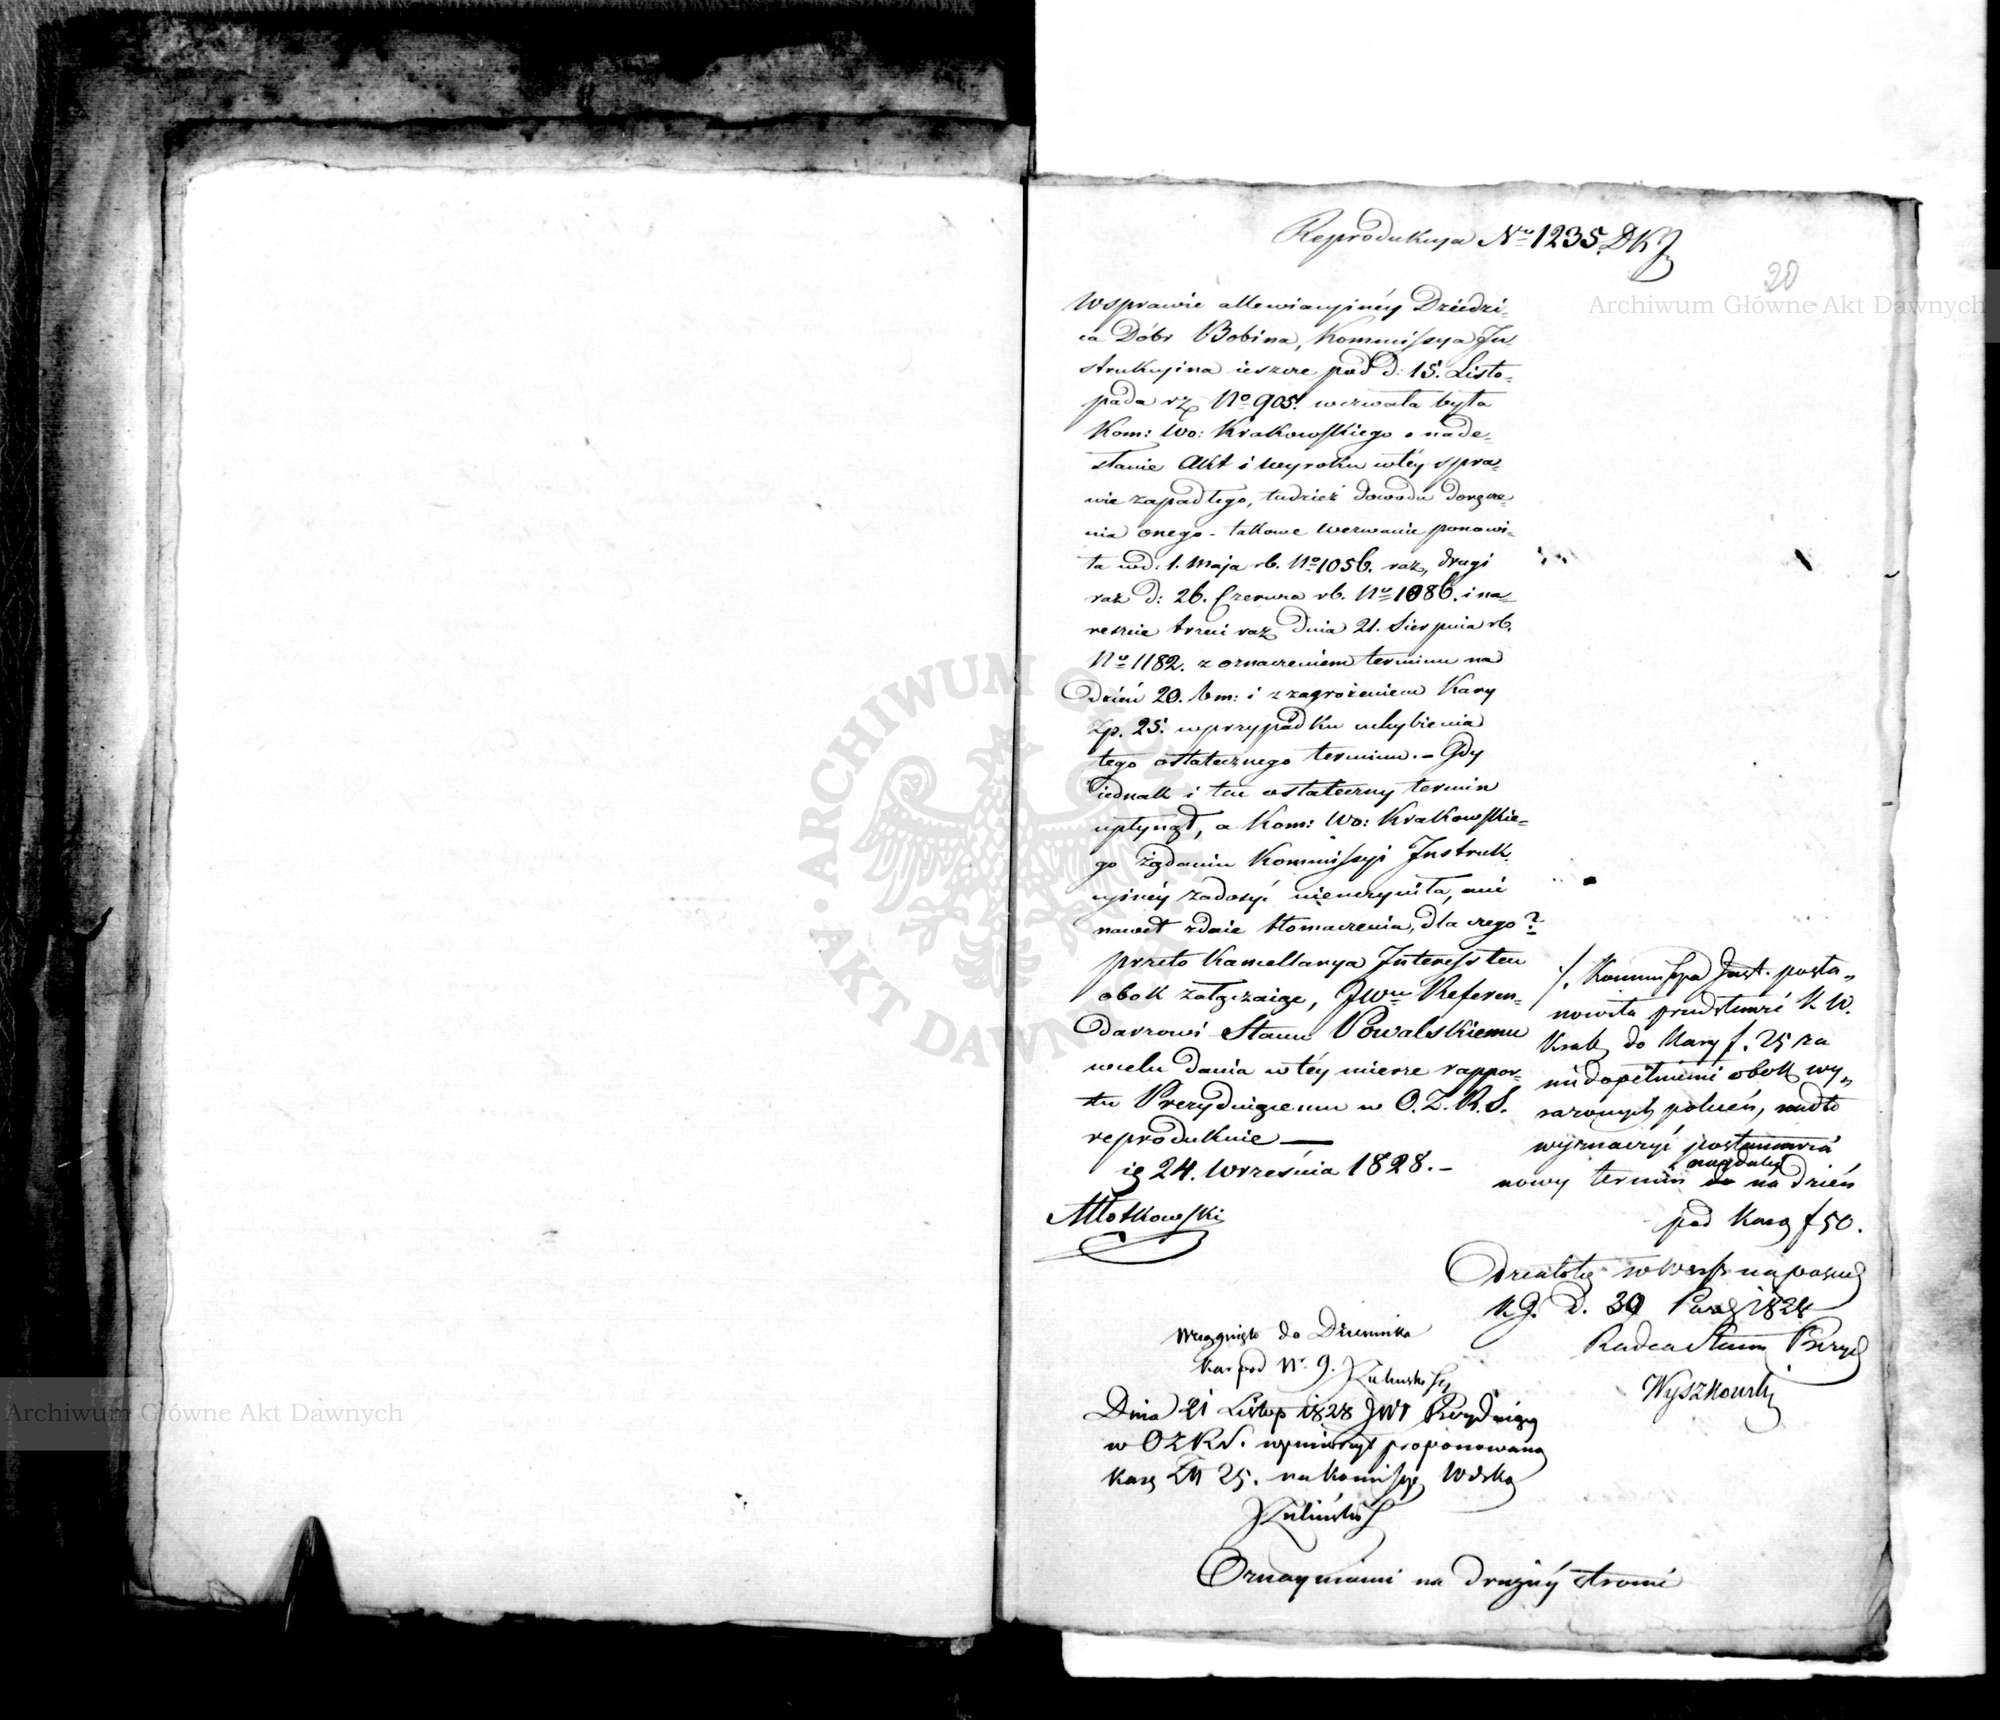 Reprodukcya Nro 1235. DKJ
20
W sprawie allewiacyinéy Dziedzi-
ca Dóbr Bobina, Kommissya In-
strukcyina ieszcze pod d: 15. Listo-
pada rz No 905. wezwała była
Kom: Wo: Krakowskiego o nade-
słanie Akt i wyroku w téy spra-
wie zapadłego, tudzież dowodu doręcze-
nia onego - takowe wezwanie ponowi-
ła wd: 1. Maja rb. No 1056. raz, drugi
raz d: 26. Czerwca rb. Nro 1086. i na-
reszcie trzeci raz dnia 21. Sierpnia rb.
Nro 1182. z oznaczeniem terminu na
dzień 20. bm: i z zagrożeniem Kary
Zp. 25. w przypadku uchybienia
tego ostatecznego terminu. - Gdy
iednak i ten ostateczny termin
upłynął, a Kom: Wo: Krakowskie-
go żądaniu Kommissyi Instruk-
cyinéy zadosyć nieuczyniła, ani
nawet zdaie tłomaczenia, dla czego?
przeto Kancellarya Interess ten
obok załączaiąc, JWu Referen-
darzowi Stanu Powalskiemu
w celu dania w téy mierze rappor-
tu Prezyduiącemu w O.Z.R.S.
reprodukuie —
ię 24. Września 1828. -
Młotkowski
/. Kommissya Inst. posta-
nowiła przedstawić K W.
Krak do Kary f. 25 za
niedopełnienie obok wy-
rażonych poleceń, nadto
wyznaczyć postanawia
naydaléy
nowy termin na dzień
pod Karą f 50.
Działo się w Warsz na posied
K.J. d. 30 Paźd 1828
Radca Stanu Prezyd
Wyszkowski
Wciągnięto do Dziennika
Kar pod Nr. 9.
Dnia 21 Listop 1828 JW Prezyduiący
w OZRS. wymierzył proponowaną
karę Zł 25. na Komissyę Wdzką
Oznaymienie na drugiéy stronie
Archiwum Główne Akt Dawnych
Archiwum Główne Akt Dawnych
ARCHIWUM GŁÓWNE AKT DAWNYCH